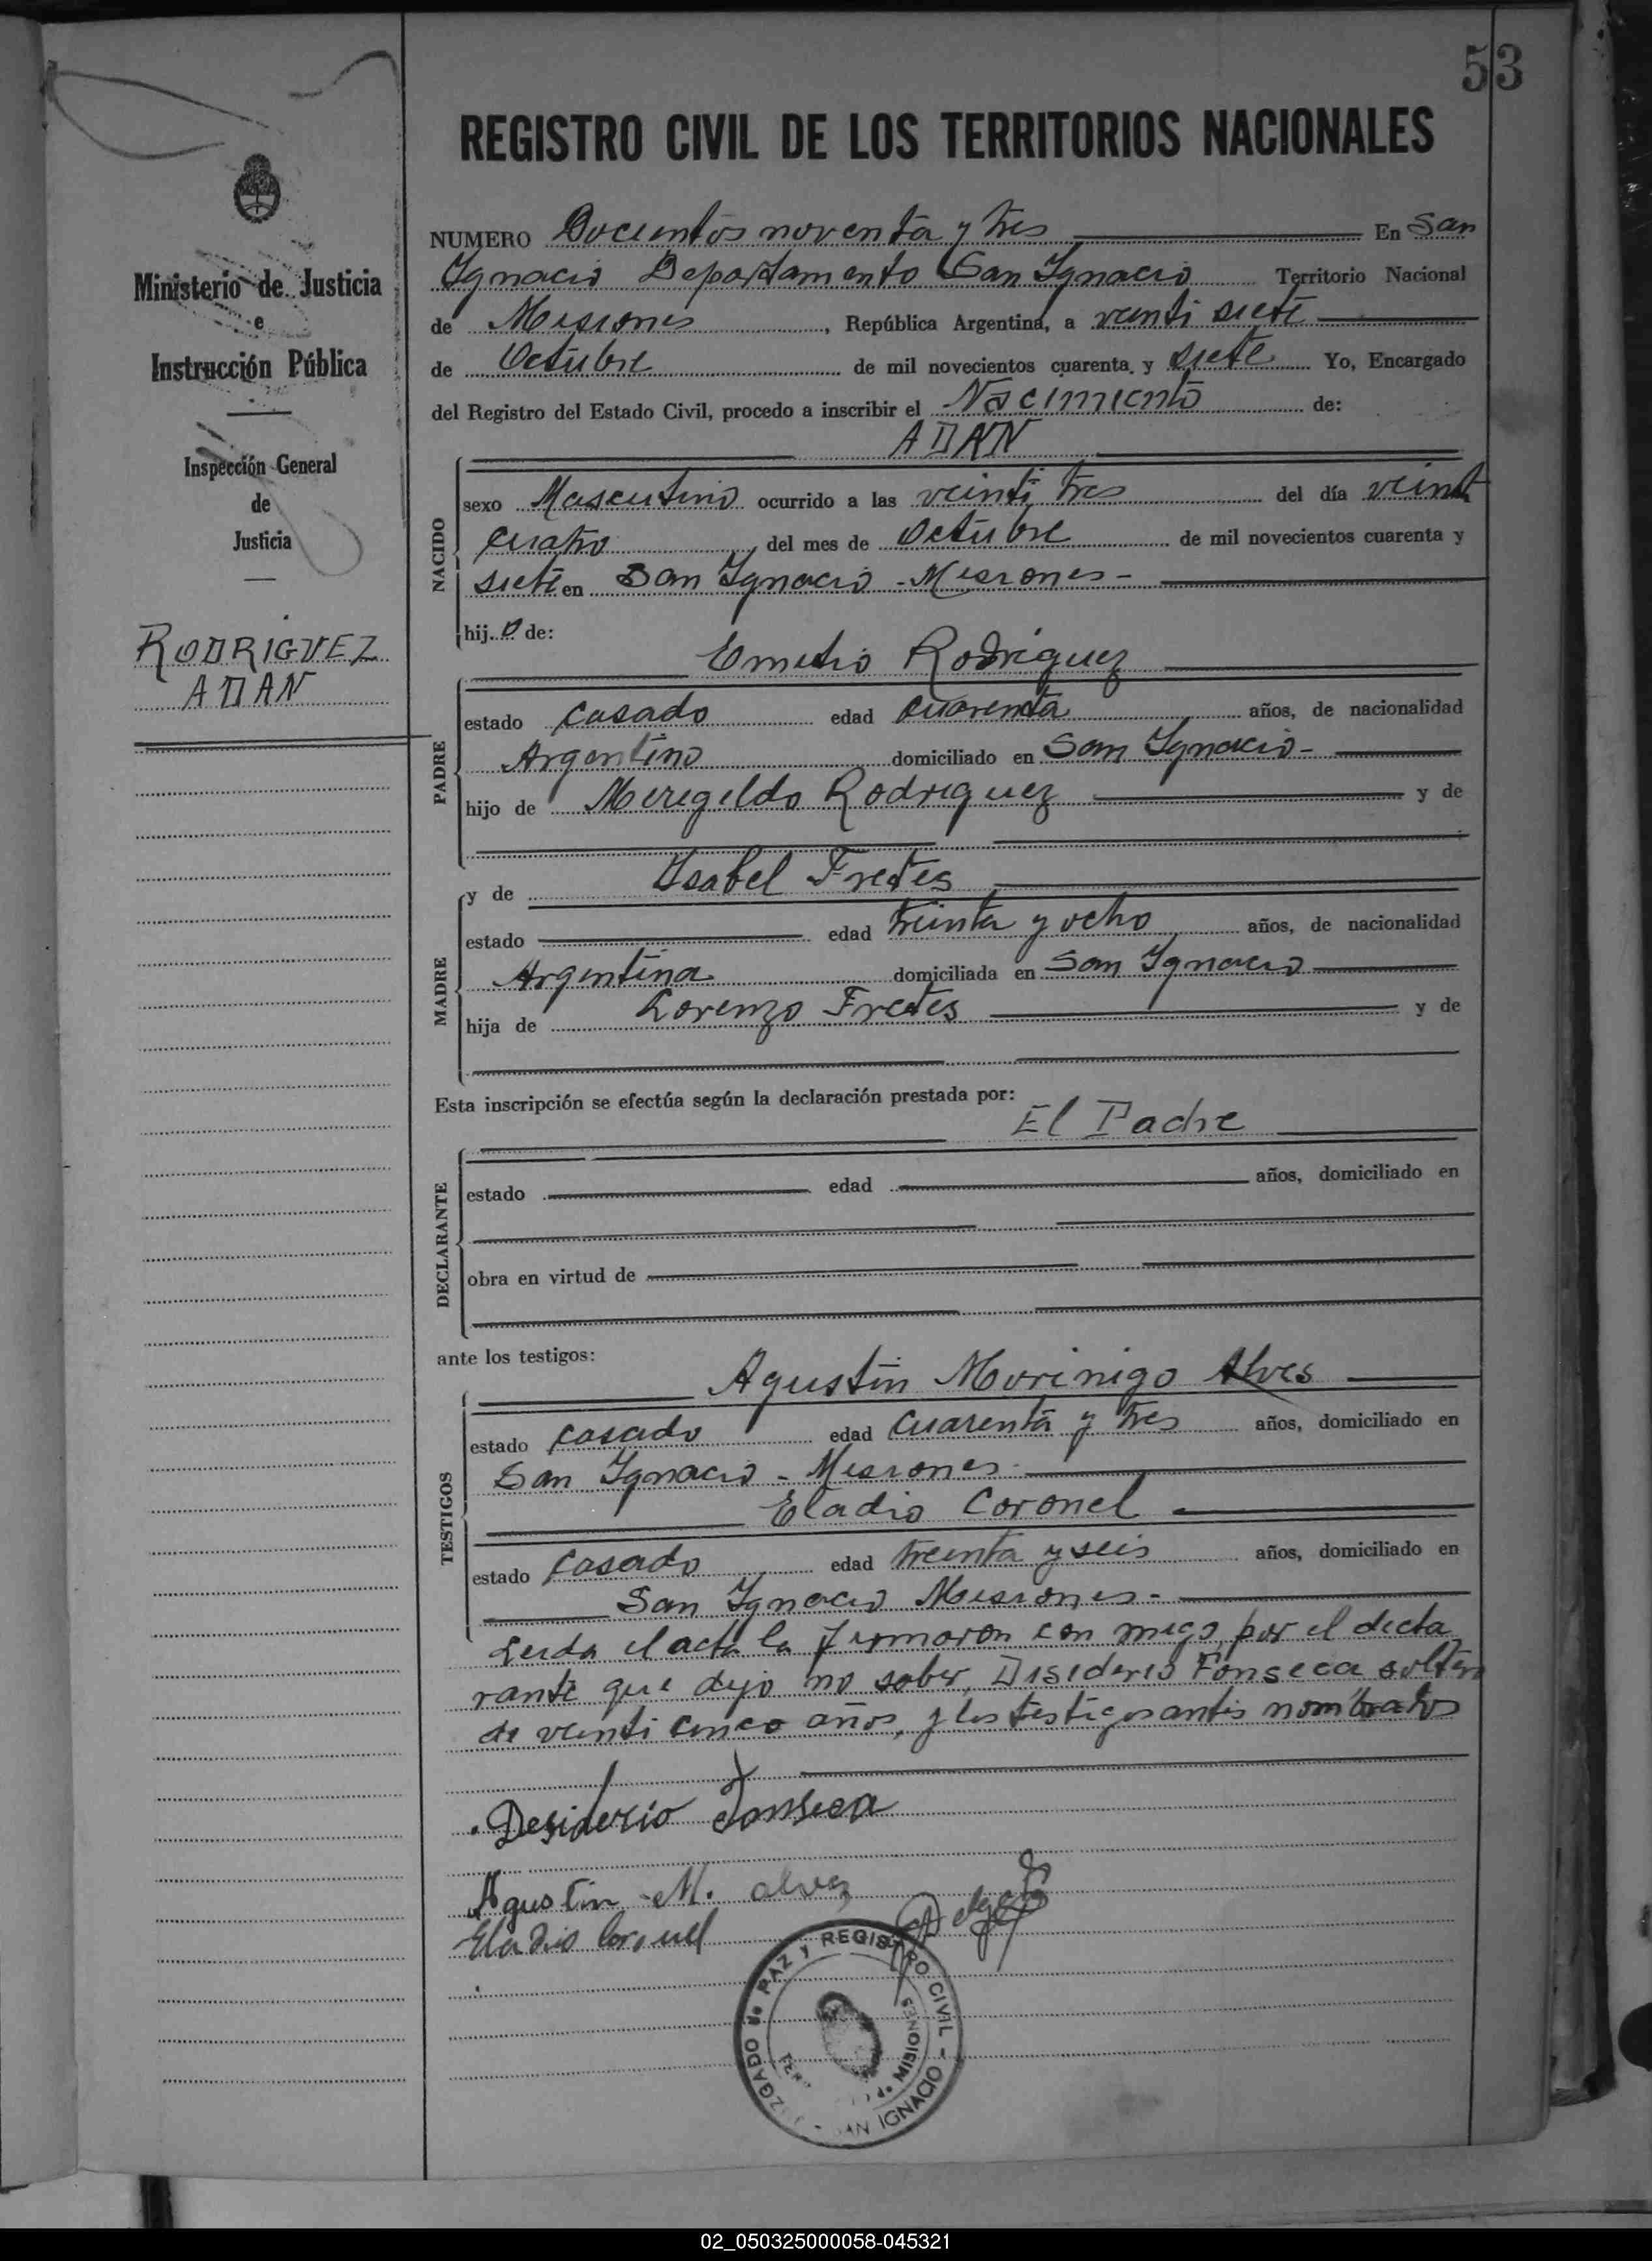 53
REGISTRO CIVIL DE LOS TERRITORIOS NACIONALES
Ministerio de Justicia
e
Instrucción Pública
Inspección General
de
Justicia
RODRIGUEZ
ADAN
NUMERO Docientos noventa y tres En San
Ignacio Departamento San Ignacio Territorio Nacional
de Misiones, República Argentina, a veinti siete
de Octubre de mil novecientos cuarenta y siete Yo, Encargado
del Registro del Estado Civil, procedo a inscribir el Nacimiento de:
ADAN
NACIDO
sexo Masculino ocurrido a las veinti tres del día veinti
cuatro del mes de Octubre de mil novecientos cuarenta y
siete en San Ignacio - Misiones -
hijo de:
Emeterio Rodriguez
PADRE
estado casado edad cuarenta años, de nacionalidad
Argentino domiciliado en San Ignacio -
hijo de Meregildo Rodriguez y de
MADRE
y de Isabel Fretes
estado edad treinta y ocho años, de nacionalidad
Argentina domiciliada en San Ignacio
hija de Lorenzo Fretes y de
Esta inscripción se efectúa según la declaración prestada por:
El Padre
DECLARANTE
estado edad años, domiciliado en
obra en virtud de
ante los testigos:
Agustin Morinigo Alves
TESTIGOS
estado casado edad cuarenta y tres años, domiciliado en
San Ignacio - Misiones
Eladio Coronel
estado casado edad treinta y seis años, domiciliado en
San Ignacio Misiones -
Leida el acta la firmaron con migo, por el decla
rante que dijo no saber, Disiderio Fonseca soltero
de veinti cinco años, y los testigos antes nombrados
Desiderio Fonseca
Agustin M. alvez
Eladio Coronel
JUZGADO de PAZ y REGISTRO CIVIL - SAN IGNACIO -
MISIONES
02_050325000058-045321